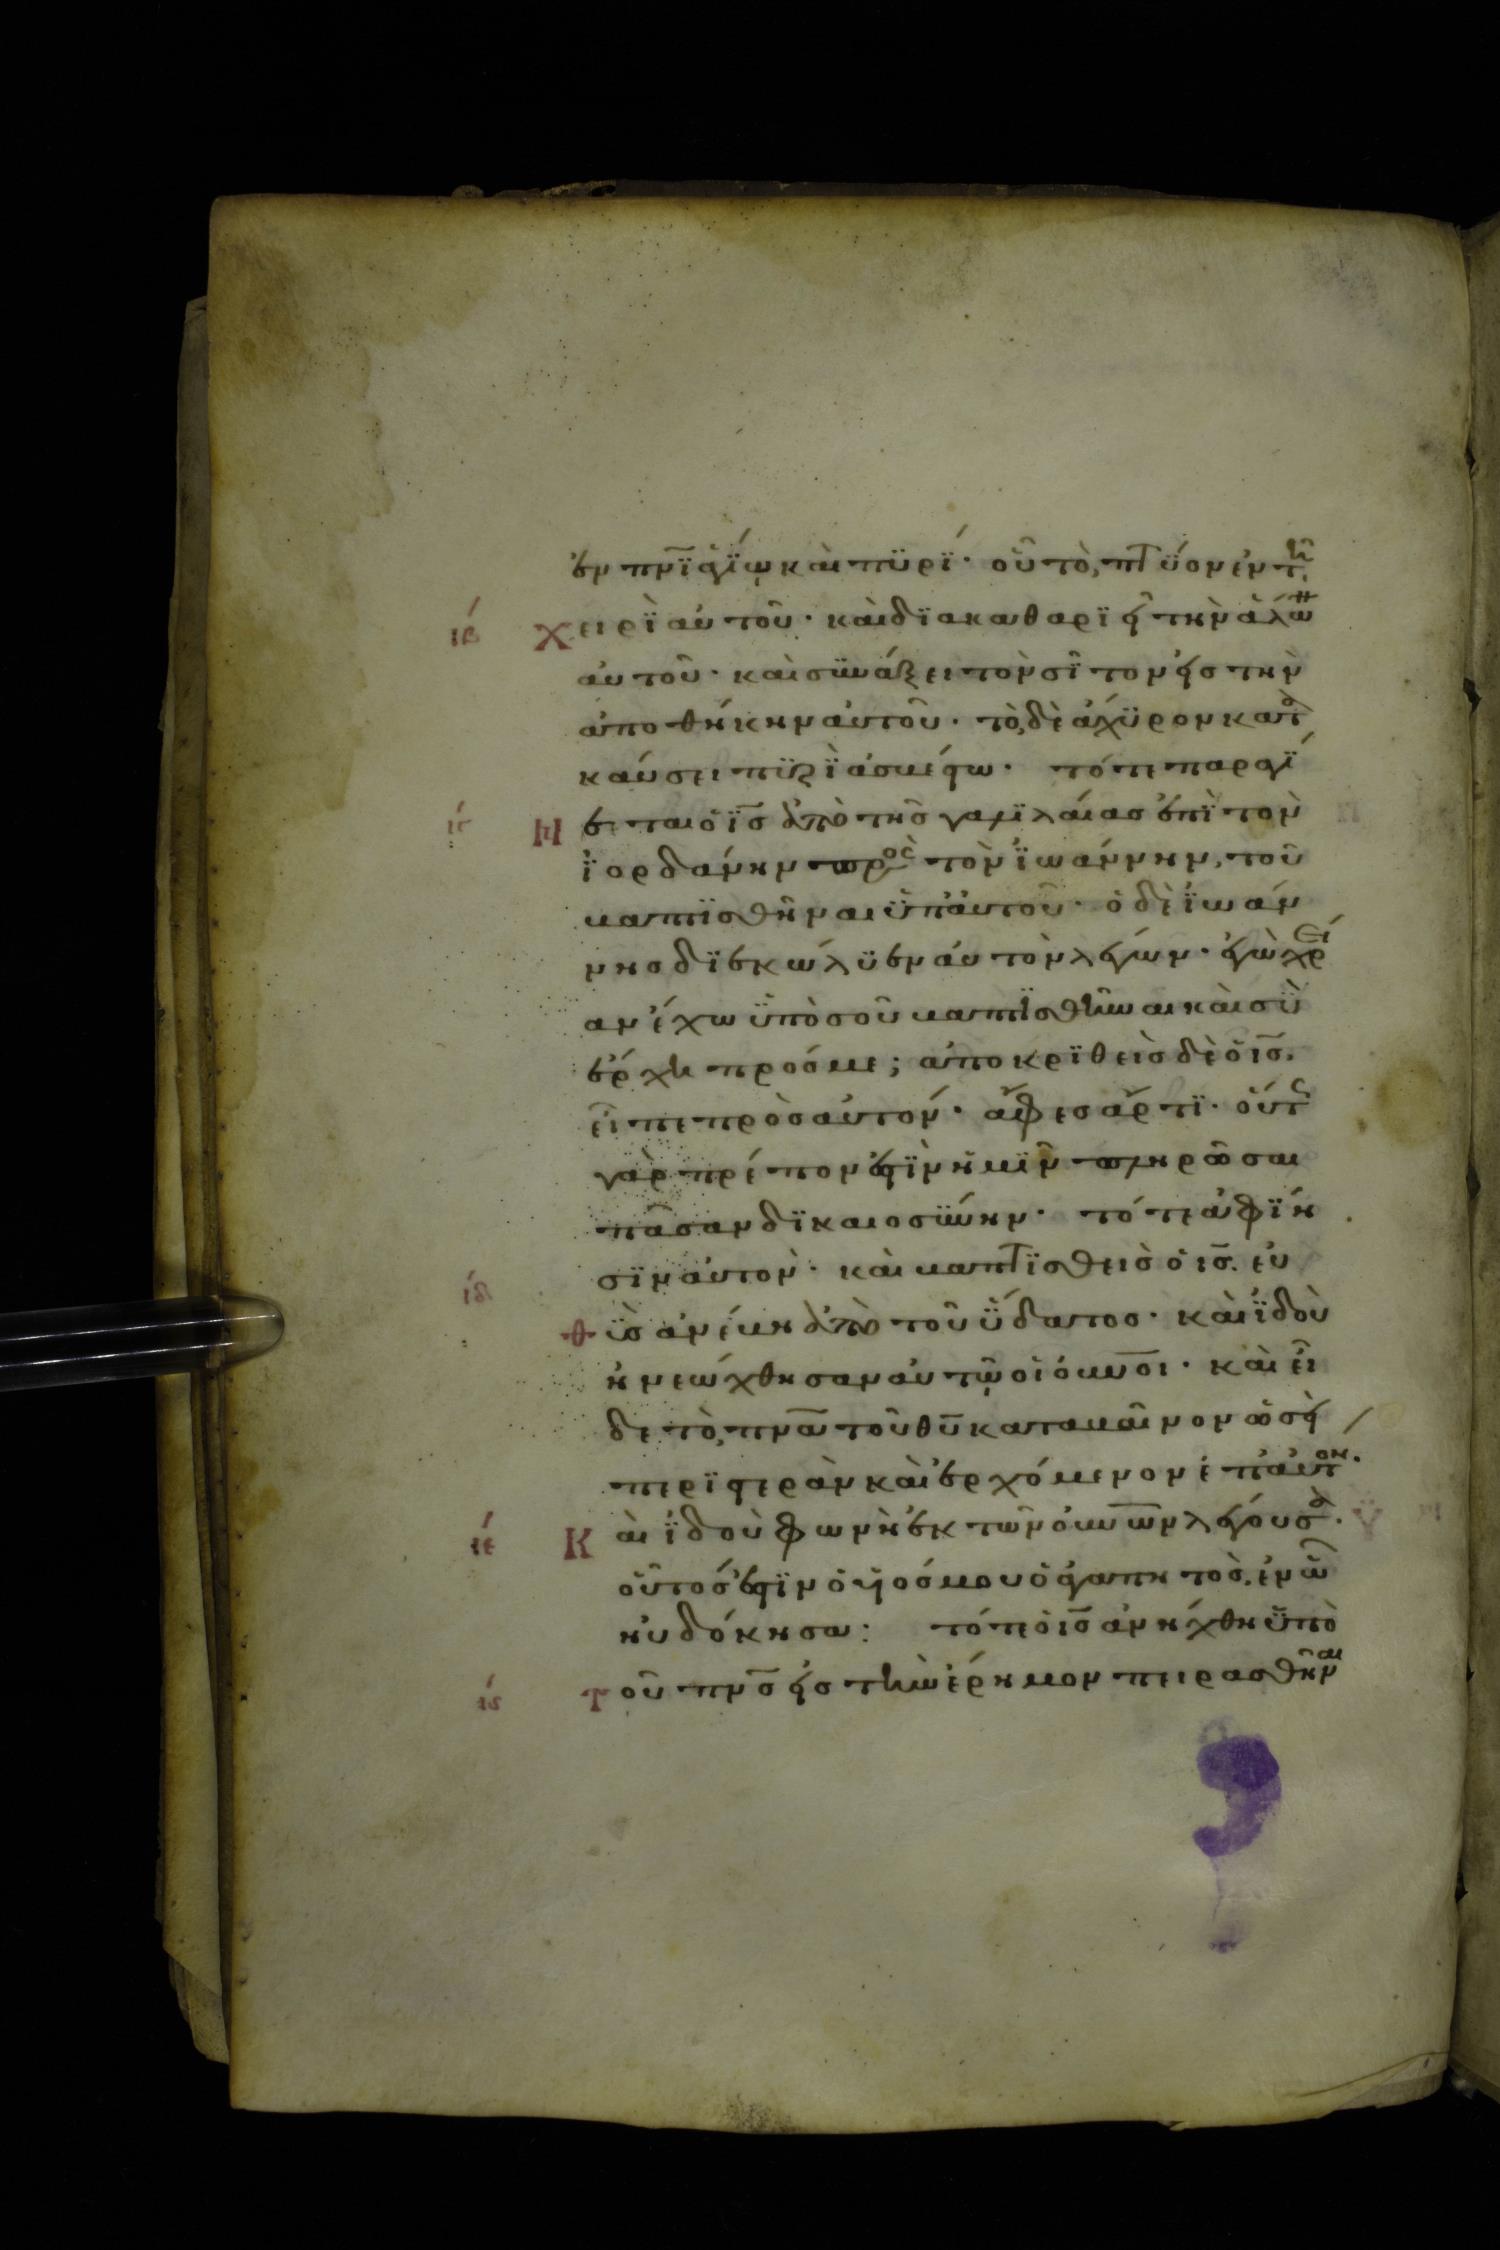 ἐν πνϊ ἁγίῳ καὶ πϋρΐ· οὗ τὸ πτΰον ἐν τῇ
ιβ Χειρὶ αὐτοῦ· καὶ δϊακαθαρϊεῖ τὴν ἅλω
αὐτοῦ· καὶ σϋνάξει τὸν σῖτον εἰς τὴν
ἀποθήκην αὐτοῦ· τὸ δὲ ἄχϋρον κατα
καύσει πϋρὶ ἀσβέστω· τότε παραγί
ιγ Νεται ὁ ις ἀπὸ τῆς γαλϊλαίας ἐπὶ τὸν
ϊορδάνην πρὸς τὸν ϊωάννην, τοῦ
βαπτϊσθῆναι ϋπ' αὐτοῦ· ὁ δὲ ϊωάν
νης δϊεκώλϋεν αὐτὸν λέγων· ἐγὼ χρεί
αν ἔχω ϋπὸ σοῦ βαπτϊσθῆναι καὶ σϋ
ἔρχη πρός με; ἀποκρϊθεὶς δὲ ὁ ις.
εἶπε πρὸς αὐτόν· ἄφες ἄρτϊ· οὕτως
γὰρ πρέπον ἐστὶν ἡμῖν πληρῶσαι
πᾶσαν δϊκαιοσϋνην· τότε ἀφϊη
σϊν αὐτὸν· καὶ βαπτϊσθεὶς ὁ ις. εὐ
ιδ θϋς ἀνέβη ἀπὸ τοῦ ϋδατος· καὶ ϊδοὺ
ἠνεώχθησαν αὐτῷ οἱ όυνοι· καὶ εἶ
δε τὸ πνα τοῦ θυ καταβαῖνον ὡσεὶ
περϊστερὰν καὶ ἐρχόμενον ἐπ' αὐτον.
ιε Καὶ ϊδοὺ φωνὴ ἐκ τῶν όυνων λέγουσα.
οὗτός ἐστϊν ὁ υἱός μου ὁ ἀγαπητὸς. ἐν ὧ
ηὐδόκησα: τότε ὁ ις ἀνήχθη ϋπὸ
ις Τοῦ πνς εἰς τὴν ἔρημον πειρασθῆναι